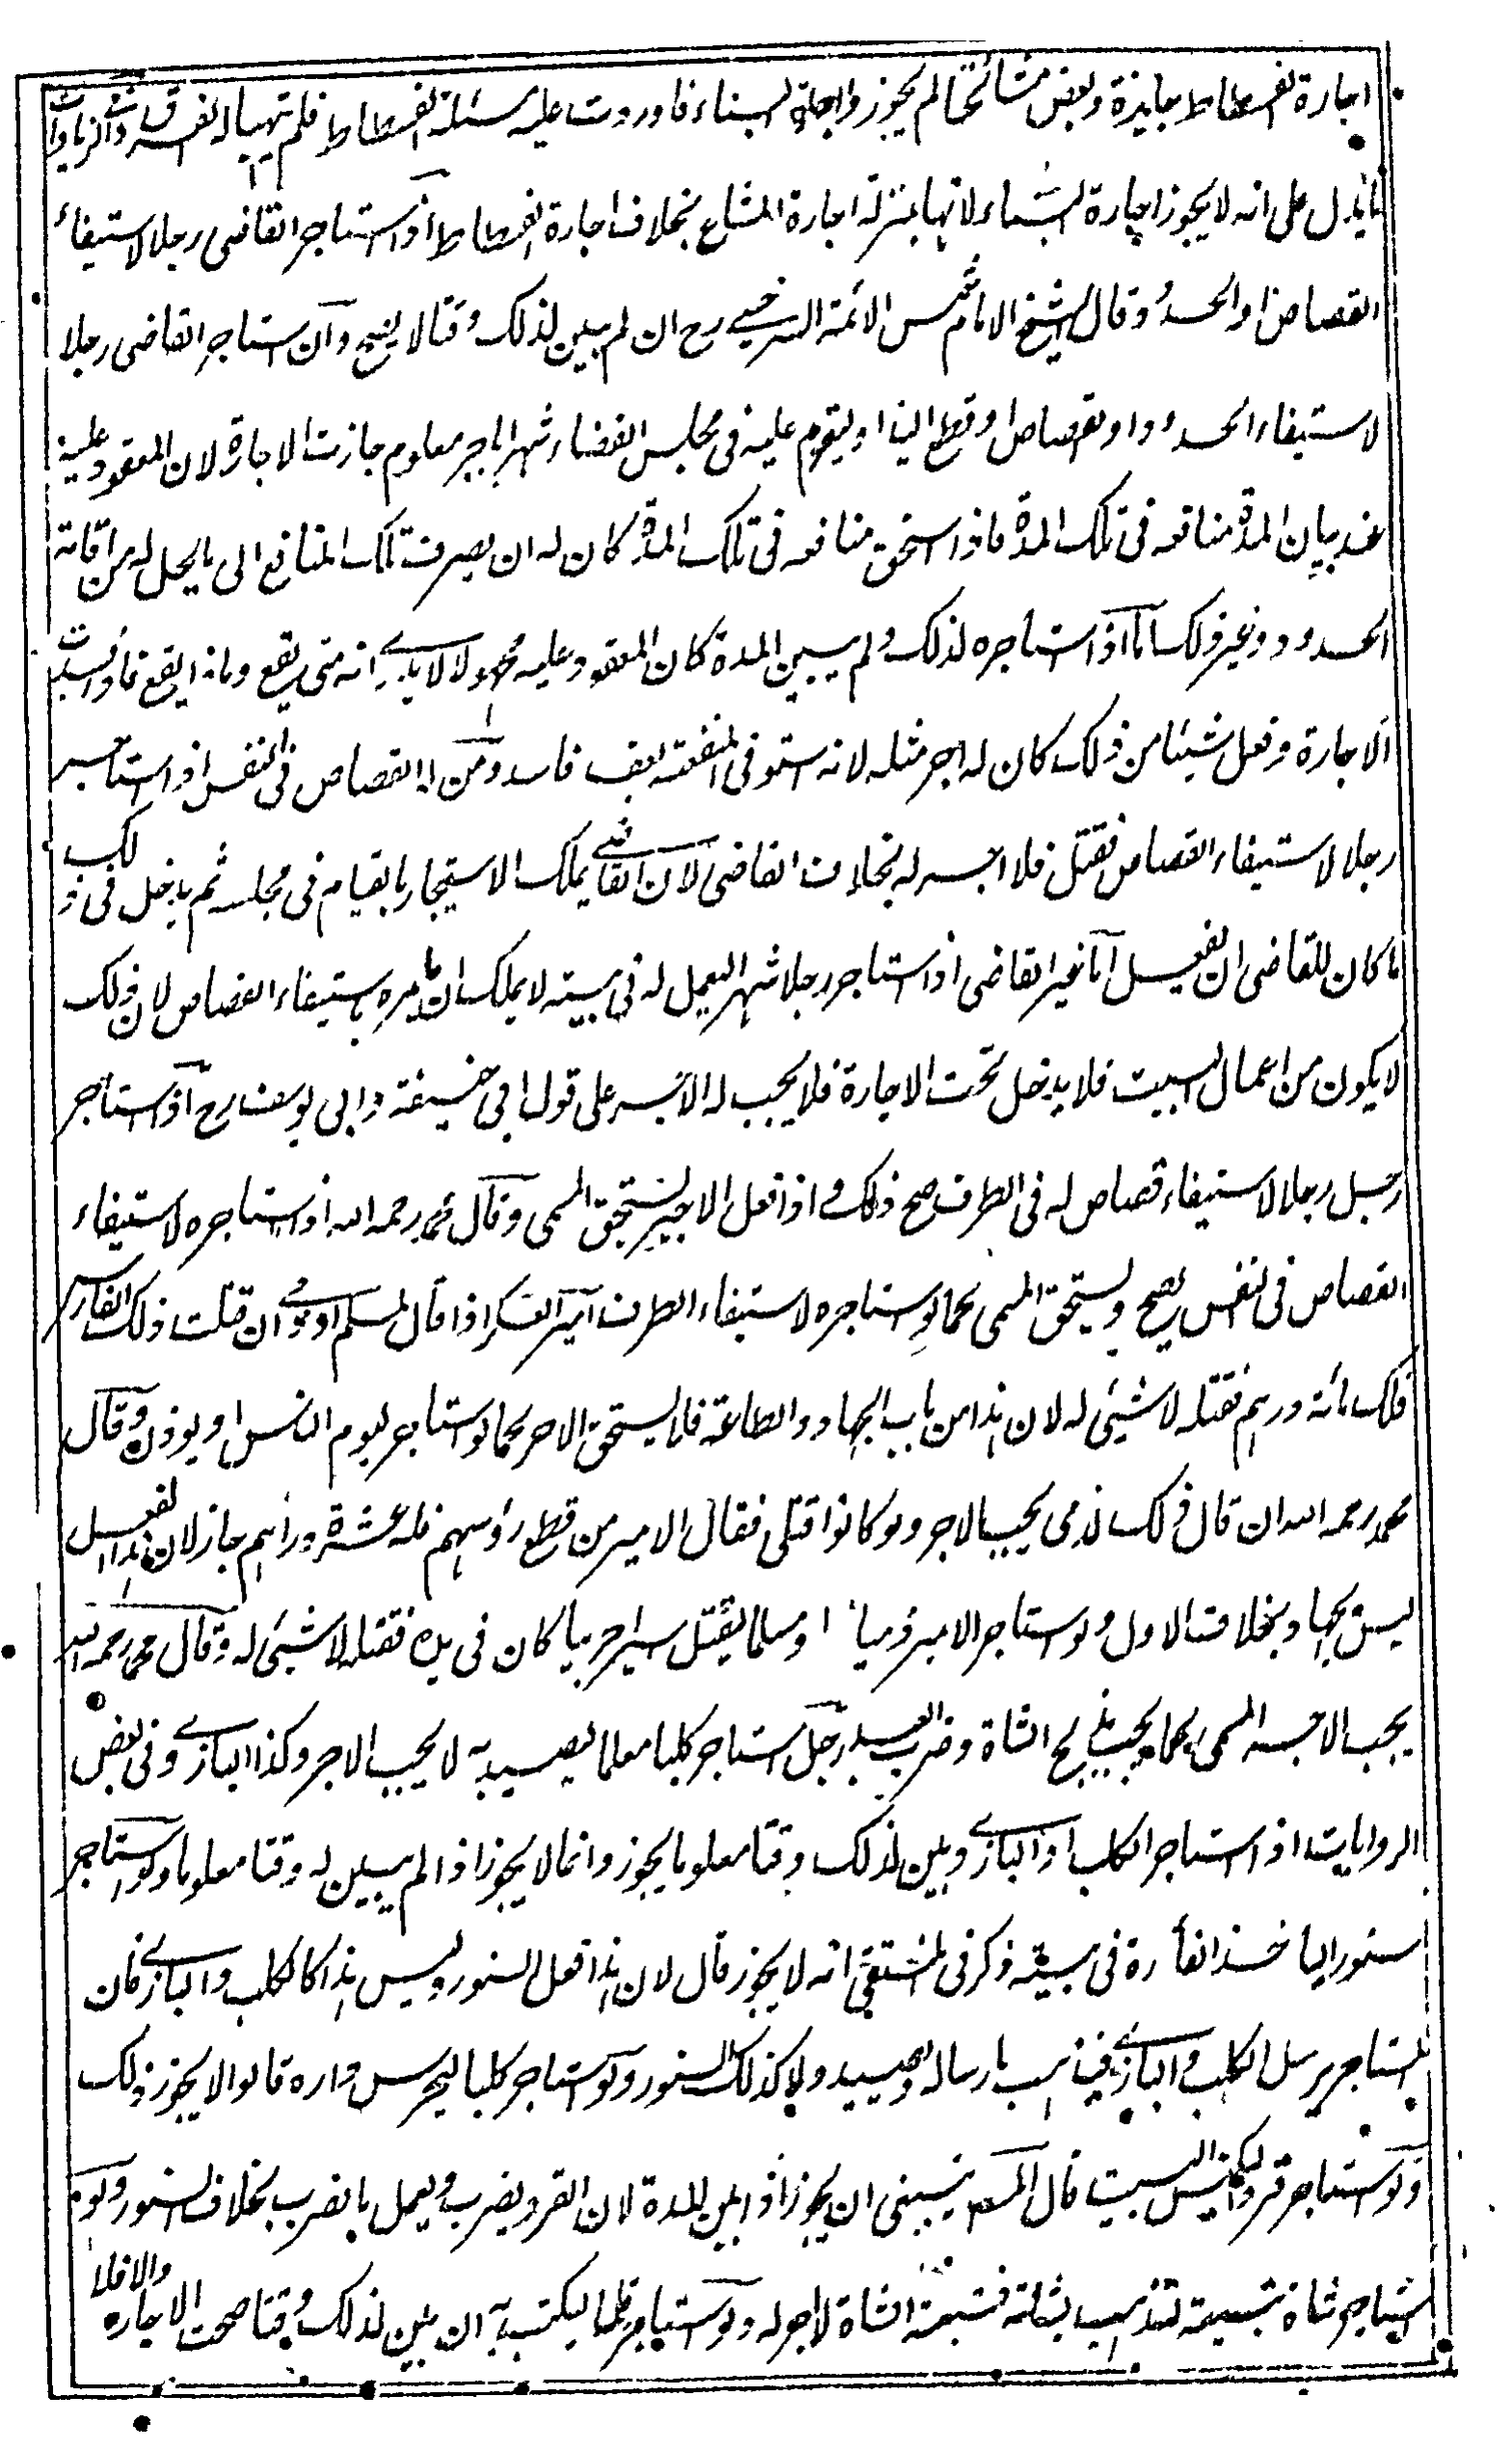 اجارة الفسطاط جايزة وبعض مشائخنا لم يجوز اجارة البناء فاوردت عليه مسئلة الفسطاط فلم يتهيأ له الفرق وفي الزيادات
ما يدل على انه لا يجوز اجارة البناء لانها بمنزلة اجارة المشاع بخلاف اجارة الفسطاط اذا استاجر القاضى رجلا لاستيفاء
القصاص او الحد وقال الشيخ الامام شمس الائمة السرخسي رح ان لم يبين لذلك وقتا لا يصح وان استاجر القاضى رجلا
لاستيفاء الحدود او القصاص او قطع اليد او ليقوم عليه فى مجلس القضاء شهرا باجر معلوم جازت الاجارة لان المعقود عليه
عند بيان المدة منافعه فى تلك المدة فاذا استحق منافعه فى تلك المدة كان له ان يصرف تلك المنافع الى ما يحل له من اقامة
الحدود وغير ذلك اما اذا استأجره لذلك ولم يبين المدة كان المعقود عليه مجهولا لا يدرے انه متى يقع وماذا يقع فاذا فسدت
الاجارة وفعل شيئا من ذلك كان له اجر مثله لانه استوفى المنفعة بعقد فاسد ومن له القصاص فى النفس اذا استاجر
رجلا لاستيفاء القصاص فقتل فلا اجر له بخلاف القاضى لان القاضي يملك الاستيجار بالقيام فى مجلسه ثم يدخل فى ذلك
ما كان للقاضى ان يفعل اما غير القاضى اذا استاجر رجلا شهرا ليعمل له فى بيته لا يملك ان يامره باستيفاء القصاص لان ذلك
لا يكون من اعمال البيت فلا يدخل تحت الاجارة فلا يجب له الاجر على قول ابى حنيفة وابى يوسف رح اذا استاجر
رجل رجلا لاستيفاء قصاص له فى الطرف صح ذلك واذا فعل الاجير يستحق المسمى وقال محمد رحمه الله اذا استاجره لاستيفاء
القصاص فى النفس يصح ويستحق المسمى كما لو استاجره لاستيفاء الطرف امير العسكر اذا قال لمسلم او ذمي ان قتلت ذلك الفارس
فلك مائة درهم فقتله لا شيئ له لان هذا من باب الجهاد والطاعة فلا يستحق الاجر كما لو استاجر ليوم الناس او يوذن وقال
محمد رحمه الله ان قال ذلك لذمى يجب الاجر ولو كانوا قتلى فقال الامير من قطع رؤسهم فله عشرة دراهم جاز لان هذا الفعل
ليس بجهاد بخلاف الاول ولو استاجر الامير ذميا او مسلما ليقتل اسيرا حربيا كان فى يده فقتله لا شيئ له وقال محمد رحمه الله
يجب الاجر المسمى كما يجب بذبح الشاة وضرب العبد رجل استاجر كلبا معلما ليصيد به لا يجب الاجر وكذا البازے وفى بعض
الروايات اذا استاجر الكلب او البازے وبين لذلك وقتا معلوما يجوز وانما لا يجوز اذا لم يبين له وقتا معلوما ولو استاجر
سنورا لياخذ الفأرة فى بيته ذكر فى المنتقى انه لا يجوز قال لان هذا فعل السنور وليس هذا كالكلب والبازے فان
المستاجر يرسل الكلب والبازے فيذهب بارساله ويصيد ولا كذلك السنور ولو استاجر كلبا ليحرس داره قالوا لا يجوز ذلك
ولو استاجر قردا ليكنس البيت قال المص ينبغى ان يجوز اذا بين المدة لان القرد يضرب ويعمل بالضرب بخلاف السنور ولو
استاجر شاة تبيعة لتذهب بشاته فتتبعه الشاة لا اجر له ولو استاجر قلما ليكتب به ان بين لذلك وقتا صحت الاجارة والا فلا